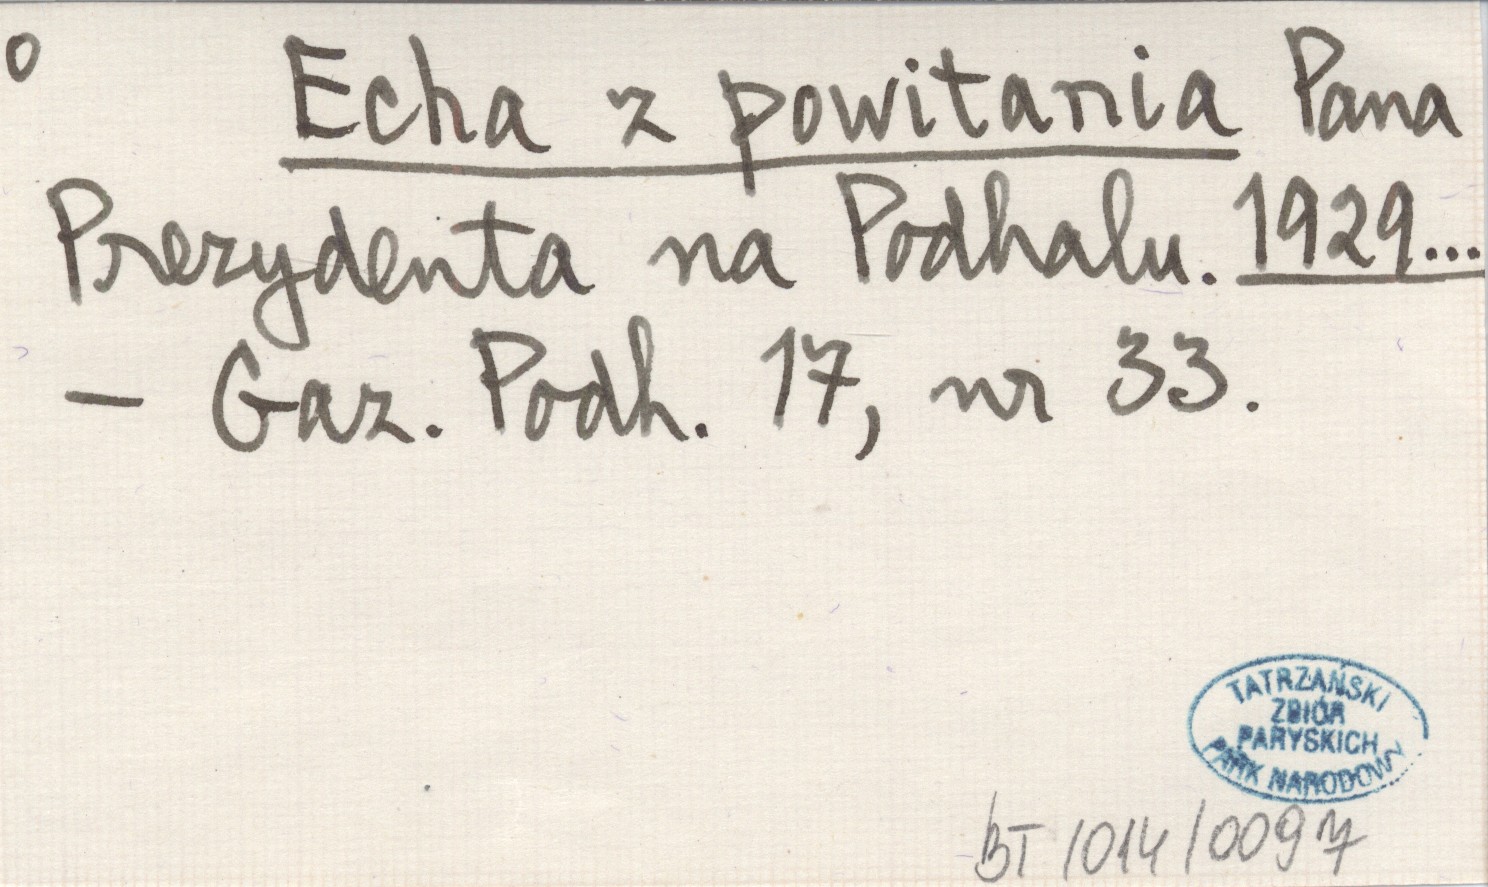 o Echa z powitania Pana
Prezydenta na Podhalu. 1929...
– Gaz. Podh. 17, nr 33.
TATRZAŃSKI
ZBIÓR
PARYSKICH
PARK NARODOWY
BT/014/0097